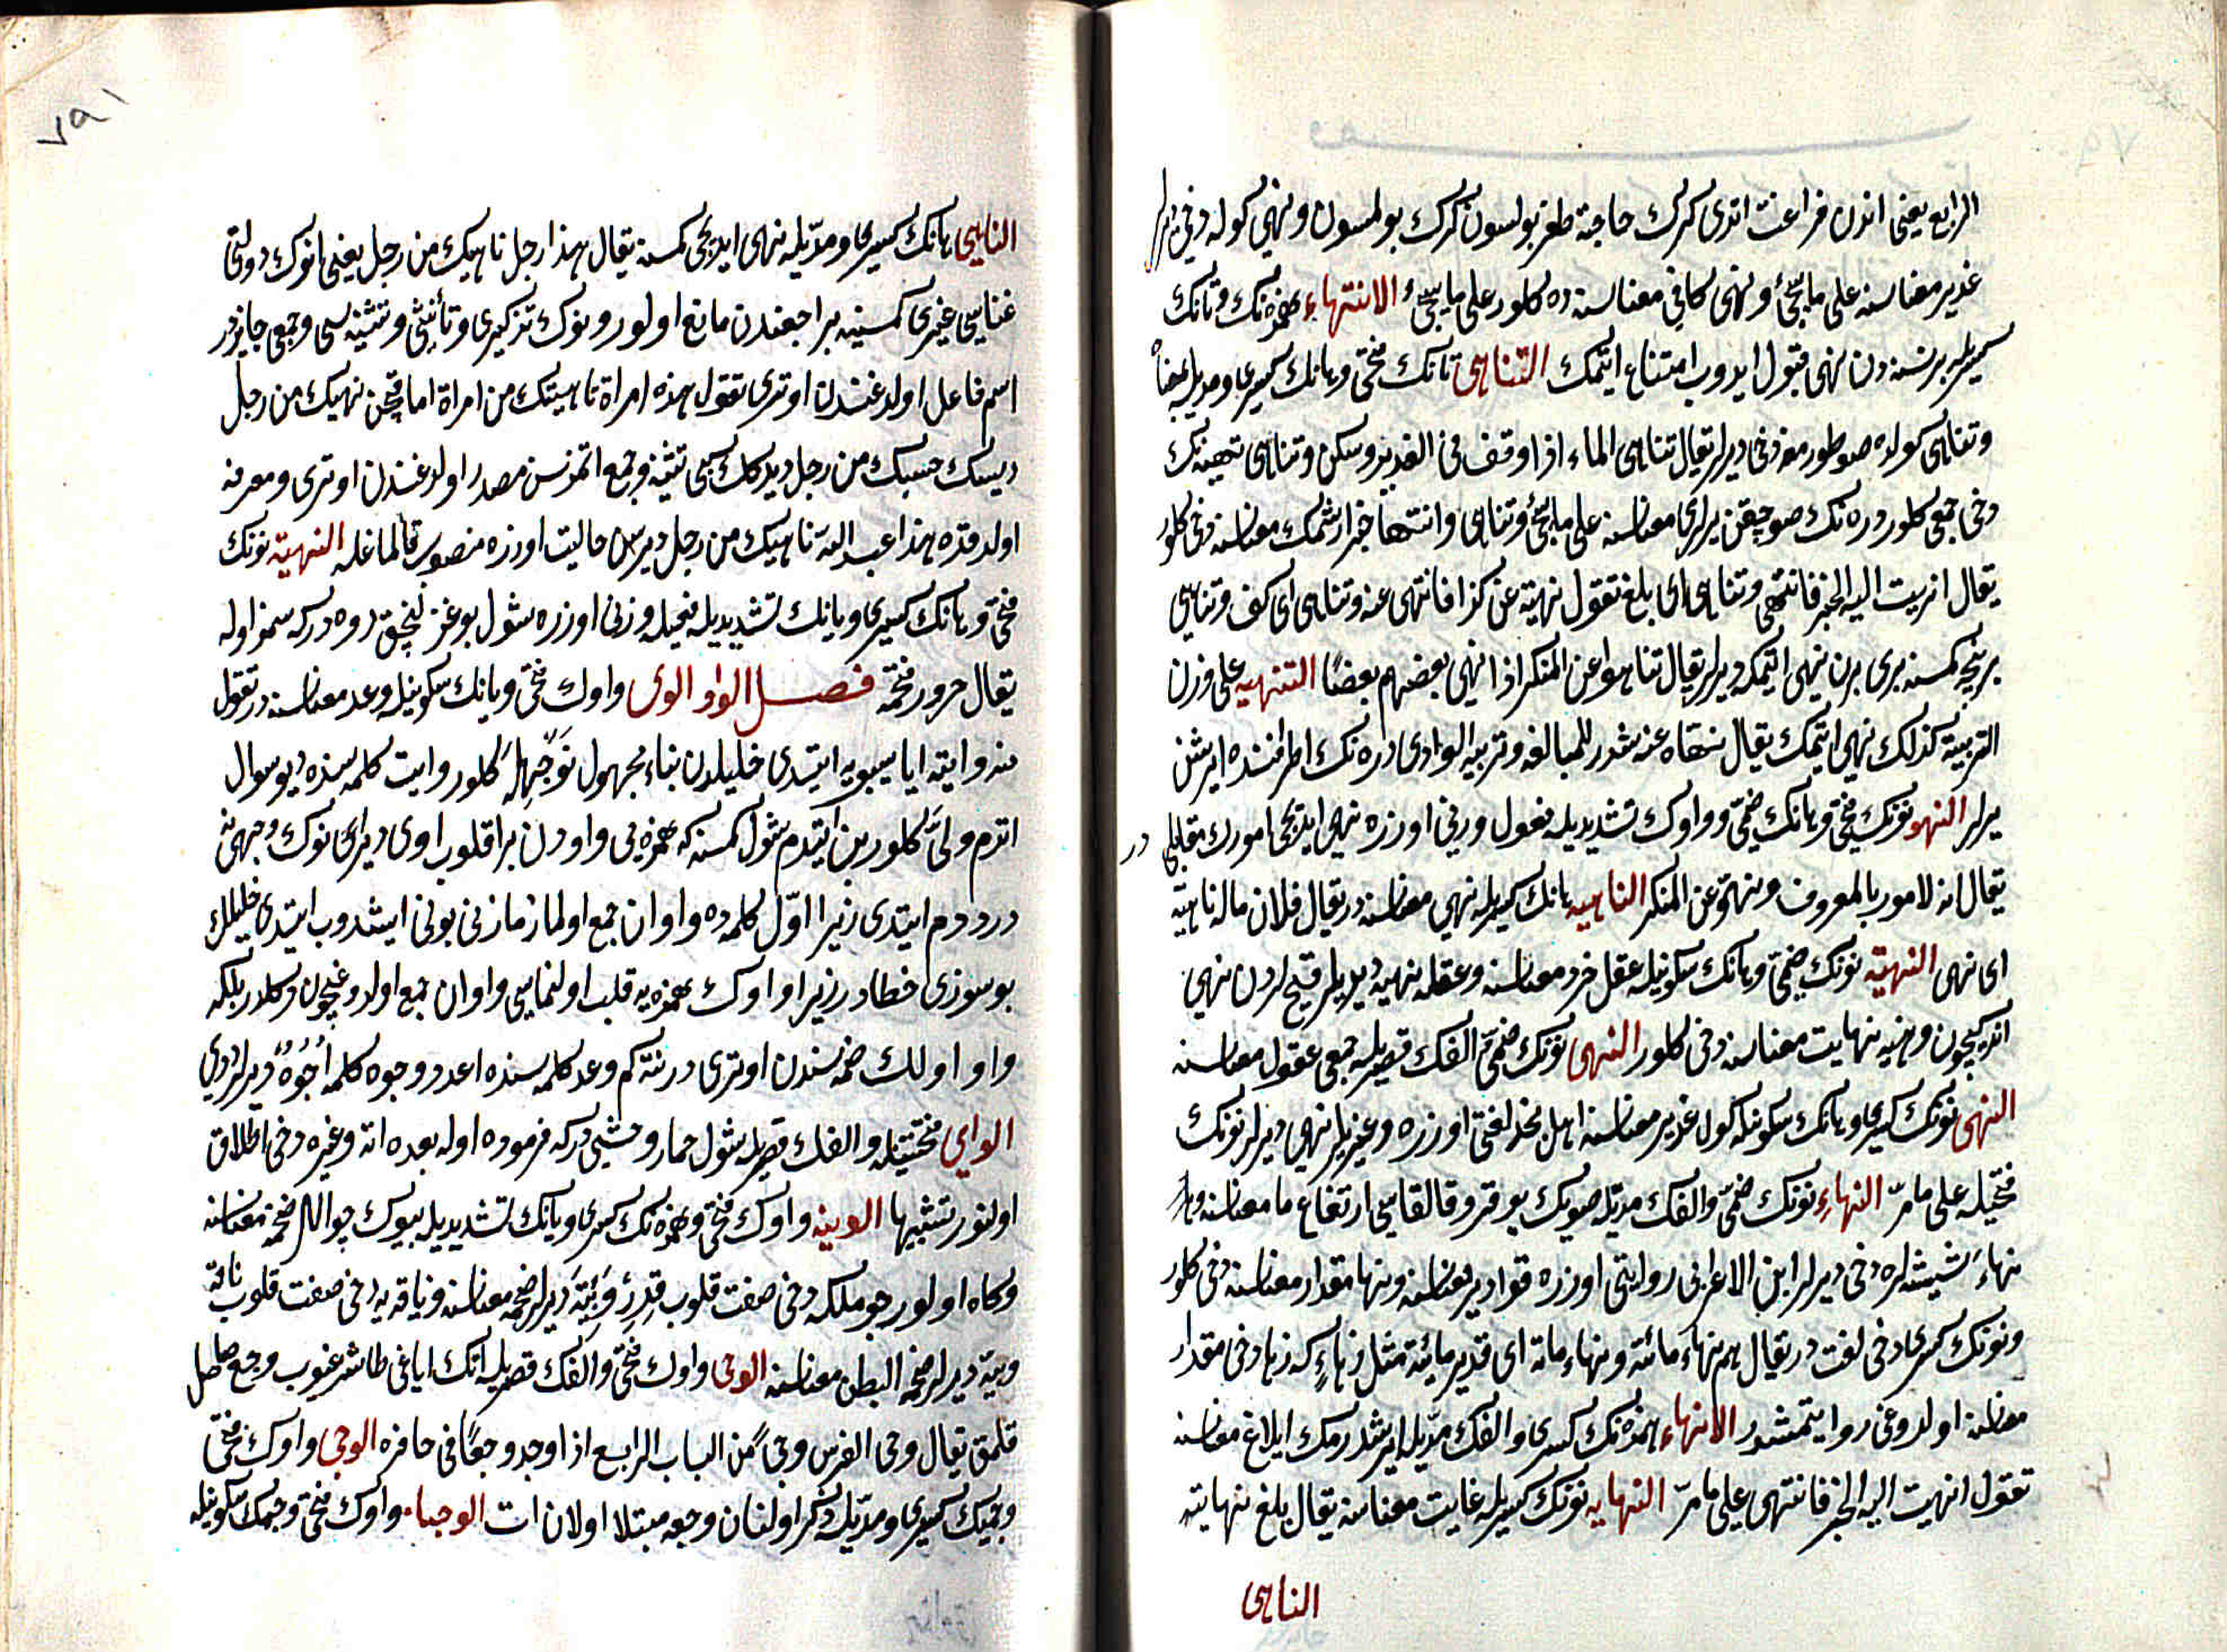 الرابع يعنى اندن فراغت اتدى كرك حاجة ظفر بولسون كرك بولمسون ونهى كوله دخى ديرلر
غدير معناسنه على ما يجئ ونهى كافى معناسنه ده كلور على ما يجئ الانتهاء همزه نك وتانك
كسريله برنسنه دن نهى قبول ايدوب امتناع ايتمك التناهى تانك فتحى وهانك كسرى ومديله بمعناه
وتناهى كولده صو طورمغه دخى ديرلر يقال تناهى الماء اذا وقف فى الغدير وسكن وتناهى تنهيه نك
دخى جمعى كلور دره نك صو چيقن يرلرى معناسنه على ما يجئ وتناهى وانتها خبر ارشمك معناسنه دخى كلور
يقال انهيت اليه الخبر فانتهى وتناهى اى بلغ تقول نهيته عن كذا فانتهى عنه وتناهى اى كف وتناهى
برنيجه كمسنه برى برن نهى ايتمكه ديرلر يقال تناهوا عن المنكر اذا نهى بعضهم بعضا التنهيه على وزن
التربية كذلك نهى ايتمك يقال نهاه عنه شدد للمبالغه وتنهيه الوادى دره نك اطرافنده ايرشن
يرلر النهو نونك فتحى وهانك ضمى وواوك تشديديله فعول وزنى اوزره نهى ايديجى امورك مقابلى در
يقال انه لامور بالمعروف ونهو عن المنكر الناهيه هانك كسريله نهى معناسنه در يقال فلان ماله ناهية
اى نهى النهية نونك ضمى وهانك سكونيله عقل خرد معناسنه وعقله نهيه ديديلر قبيحلردن نهى
اتدوكيچون ونهيه نهايت معناسنه دخى كلور النهى نونك ضمى الفك قصريله جمعى عقول معناسنه
النهى نونك كسرى وهانك سكونيله كول غدير معناسنه اهل نجد لغتى اوزره وغيريلر نهى ديرلر نونك
فتحيله على ما مر النهاء نونك ضمى والفك مديله صويك يوقرو قالقاسى ارتفاع ما معناسنه
نهاء شيشه لره دخى ديرلر ابن الاعرابى روايتى اوزره قوارير معناسنه ونها مقدار معناسنه دخى كلور
ونونك كسرى دخى لغت در يقال هم نهاء مائة ونهاء مائة اى قدر مائة مثل زهاء كه زها دخى مقدار
معناسنه اولدوغى روايتمشدر الانهاء همزه نك كسرى والفك مديله ايرشدرمك ابلاغ معناسنه
تقول انهيت اليه الخبر فانتهى على ما مر النهايه نونك كسريله غايت معناسنه يقال بلغ نهايته
الناهى
٧٩١
الناهى هانك كسرى ومديله نهى ايديجى كمسنه يقال هذا رجل ناهيك من رجل يعنى انوك دولتى
غناسى غيرى كمسنيه مراجعتدن مانع اولور وبونوك تذكيرى وتأنيثى وتثنيه سى وجمعى جائزدر
اسم فاعل اولدغندن اوترى تقول هذه امراة ناهيتك من امراة اما قچن نهيك من رجل
ديسك حسبك من رجل ديدوكك كبى تثنيه وجمع اتمزسن مصدر اولدغندن اوترى ومعرفه
اولدقده هذا عبد الله ناهيك من رجل ديرسن حاليت اوزره منصوب قالماغله النهية نونك
فتحى وهانك كسرى ويانك تشديديله فعيله وزنى اوزره شول بوغزلنجق دوه دركه سمز اوله
يقال جزور نهية فصل الواو الوى واوك فتحى ويانك سكونيله وعد معناسنه در تقول
منه وايته ايا سيبويه ايتدى خليلدن بناء مجهول نوجهله كلور وايت كلمه سنده ديو سوال
اتدم ولى كلور بن ايتدم شول كمسنه كه همزه يى واودن براقلوب اوى ديراى نوك وجهى نه
در ددم ايتدى زيرا اول كلمه ده واوان جمع اولماز مازنى بونى ايشدوب ايتدى خليلك
بو سوزى خطادر زيرا واوك همزه يه قلب اولنماسى واوان جمع اولدوغيچون دكلدر بلكه
واو اولك ضمه سندن اوتريدر نته كم وعد كلمه سنده اعد ووجوه كلمه اجوه ديرلر ددى
الواى فتحتيله والفك قصريله شول حمار وحشى دركه فرموده اوله بعده اته وغيره دخى اطلاق
اولنور تشبيها الوئيه واوك فتحى وهمزه نك كسرى ويانك تشديديله بيوك چوال ضخمه معناسنه
وكاه اولور چوملكه دخى صفت قلوب قدر وئية ديرلر ضخمه معناسنه وناقه يه دخى صفت قلوب ناقة
وئية ديرلر ضخمة البطن معناسنه الوجى واوك فتحى والفك قصريله اتك اياغى طاشرغيوب وجع حاصل
قلمق يقال وجى الفرس وجى من الباب الرابع اذا وجد وجعا فى حافره الوجى واوك فتحى
وجيمك كسرى ومديله ذكر اولنان وجعه مبتلا اولان ات الوجاء واوك فتحى وجيمك سكونيله